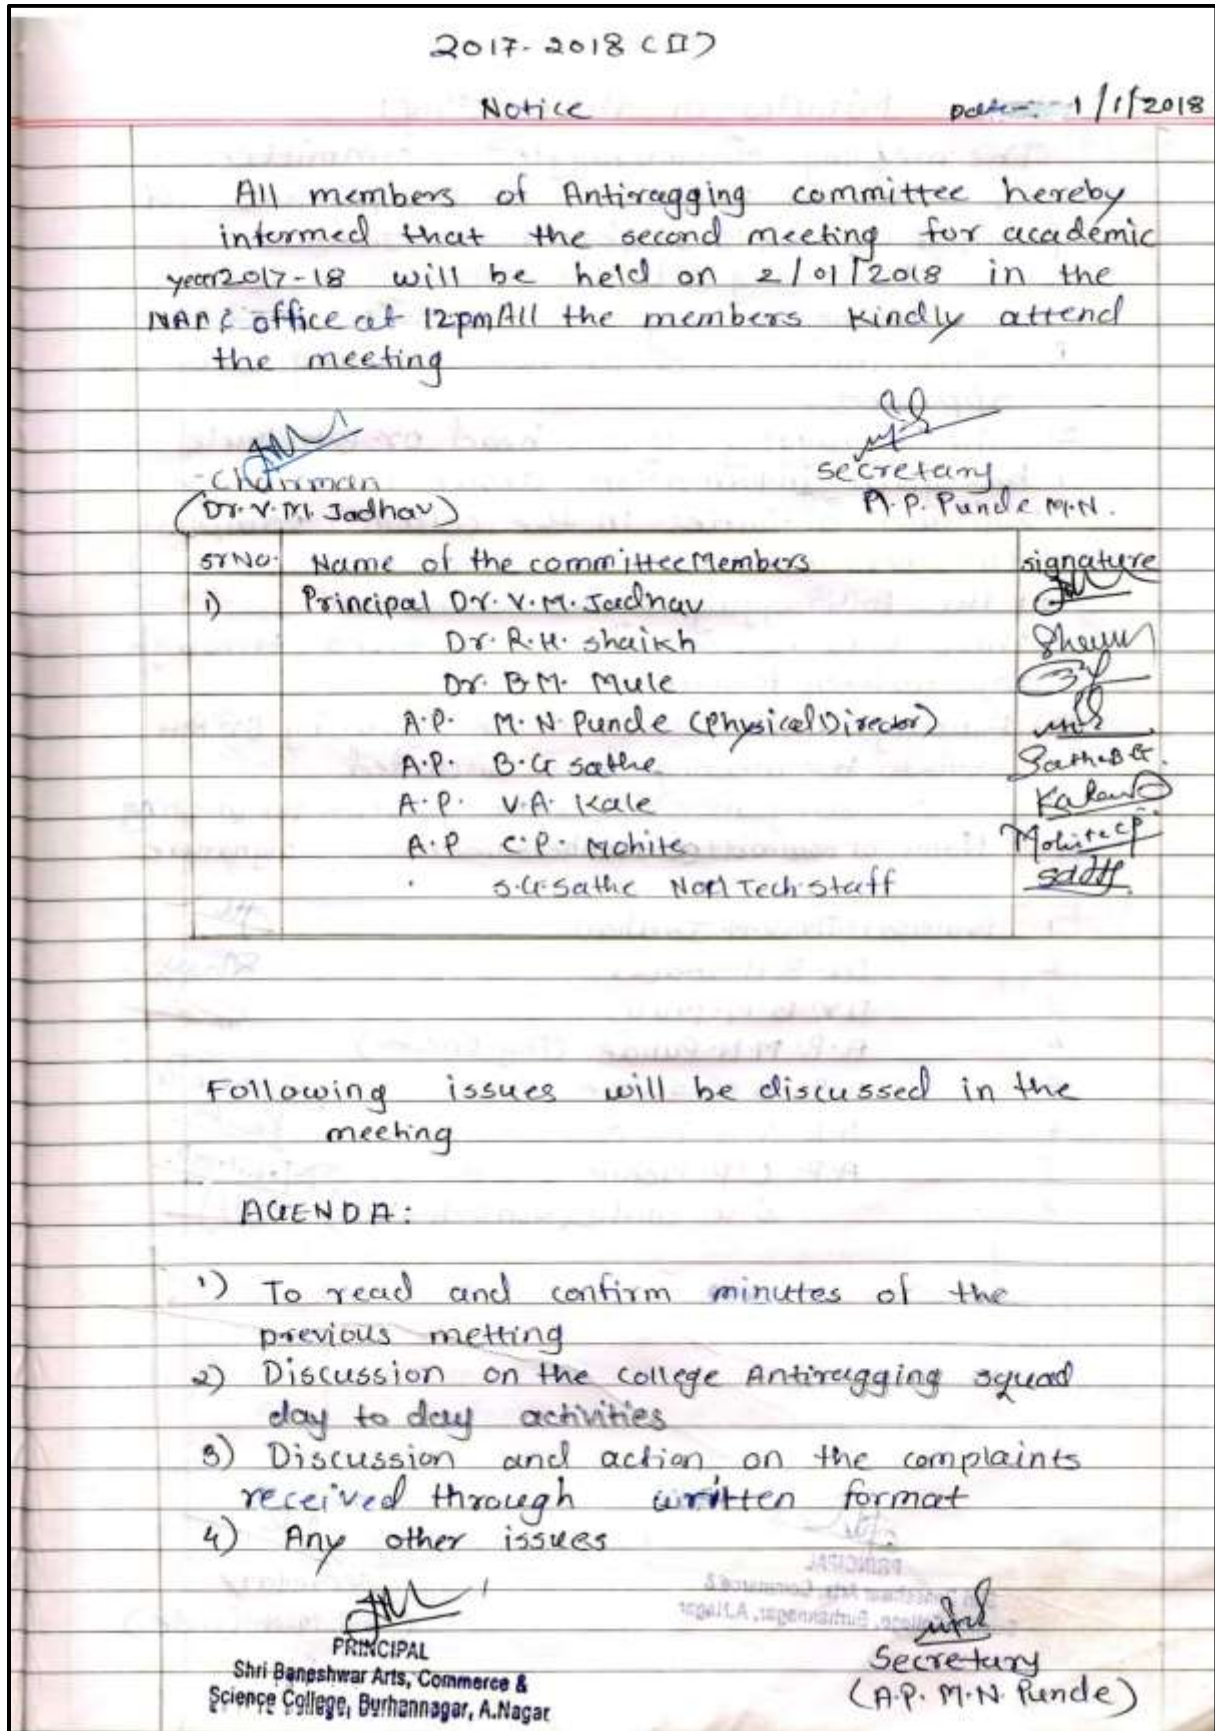 2017-2018 (II)
Notice Date:- 1/1/2018
All members of Antiragging committee hereby
informed that the second meeting for academic
year 2017-18 will be held on 2/01/2018 in the
NAAC office at 12pm All the members kindly attend
the meeting
Chairman
(Dr. V. M. Jadhav)
Secretary
A.P. Punde M.N.
Sr No. Name of the committee Members signature
1) Principal Dr. V. M. Jadhav
Dr. R. H. Shaikh
Dr. B M. Mule
A.P. M. N. Punde (Physical Director)
A.P. B. G Sathe Sathe B G.
A.P. V.A. Kale
A.P C.P. Mohite Mohite CP.
S.G Sathe Non Tech staff
Following issues will be discussed in the
meeting
AGENDA:
1) To read and confirm minutes of the
previous metting
2) Discussion on the college Antiragging squad
day to day activities
3) Discussion and action, on the complaints
received through written format
4) Any other issues
PRINCIPAL
Shri Baneshwar Arts, Commerce &
Science College, Burhannagar, A.Nagar
Secretary
(A.P. M.N. Punde)